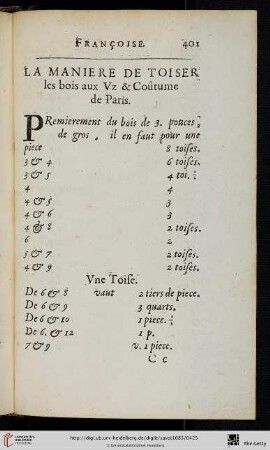 FRANÇOISE. 401
LA MANIERE DE TOISER
les bois aux Vz & Coûtume
de Paris.
PRemierement du bois de 3. pouces
de gros, il en faut pour une
piece 8 toises.
3 & 4 6 toises.
3 & 5 4 toi.
4 4
4 & 5 3
4 & 6 3
4 & 8 2 toises.
6 2
5 & 7 2 toises.
4 & 9 2 toises.
Vne Toise.
De 6 & 8 vaut 2 tiers de piece.
De 6 & 9 3 quarts.
De 6 & 10 1 piece.
De 6. & 12 1 p.
7 & 9 v. 1 piece.
C c
http://digi.ub.uni-heidelberg.de/diglit/savot1685/0425